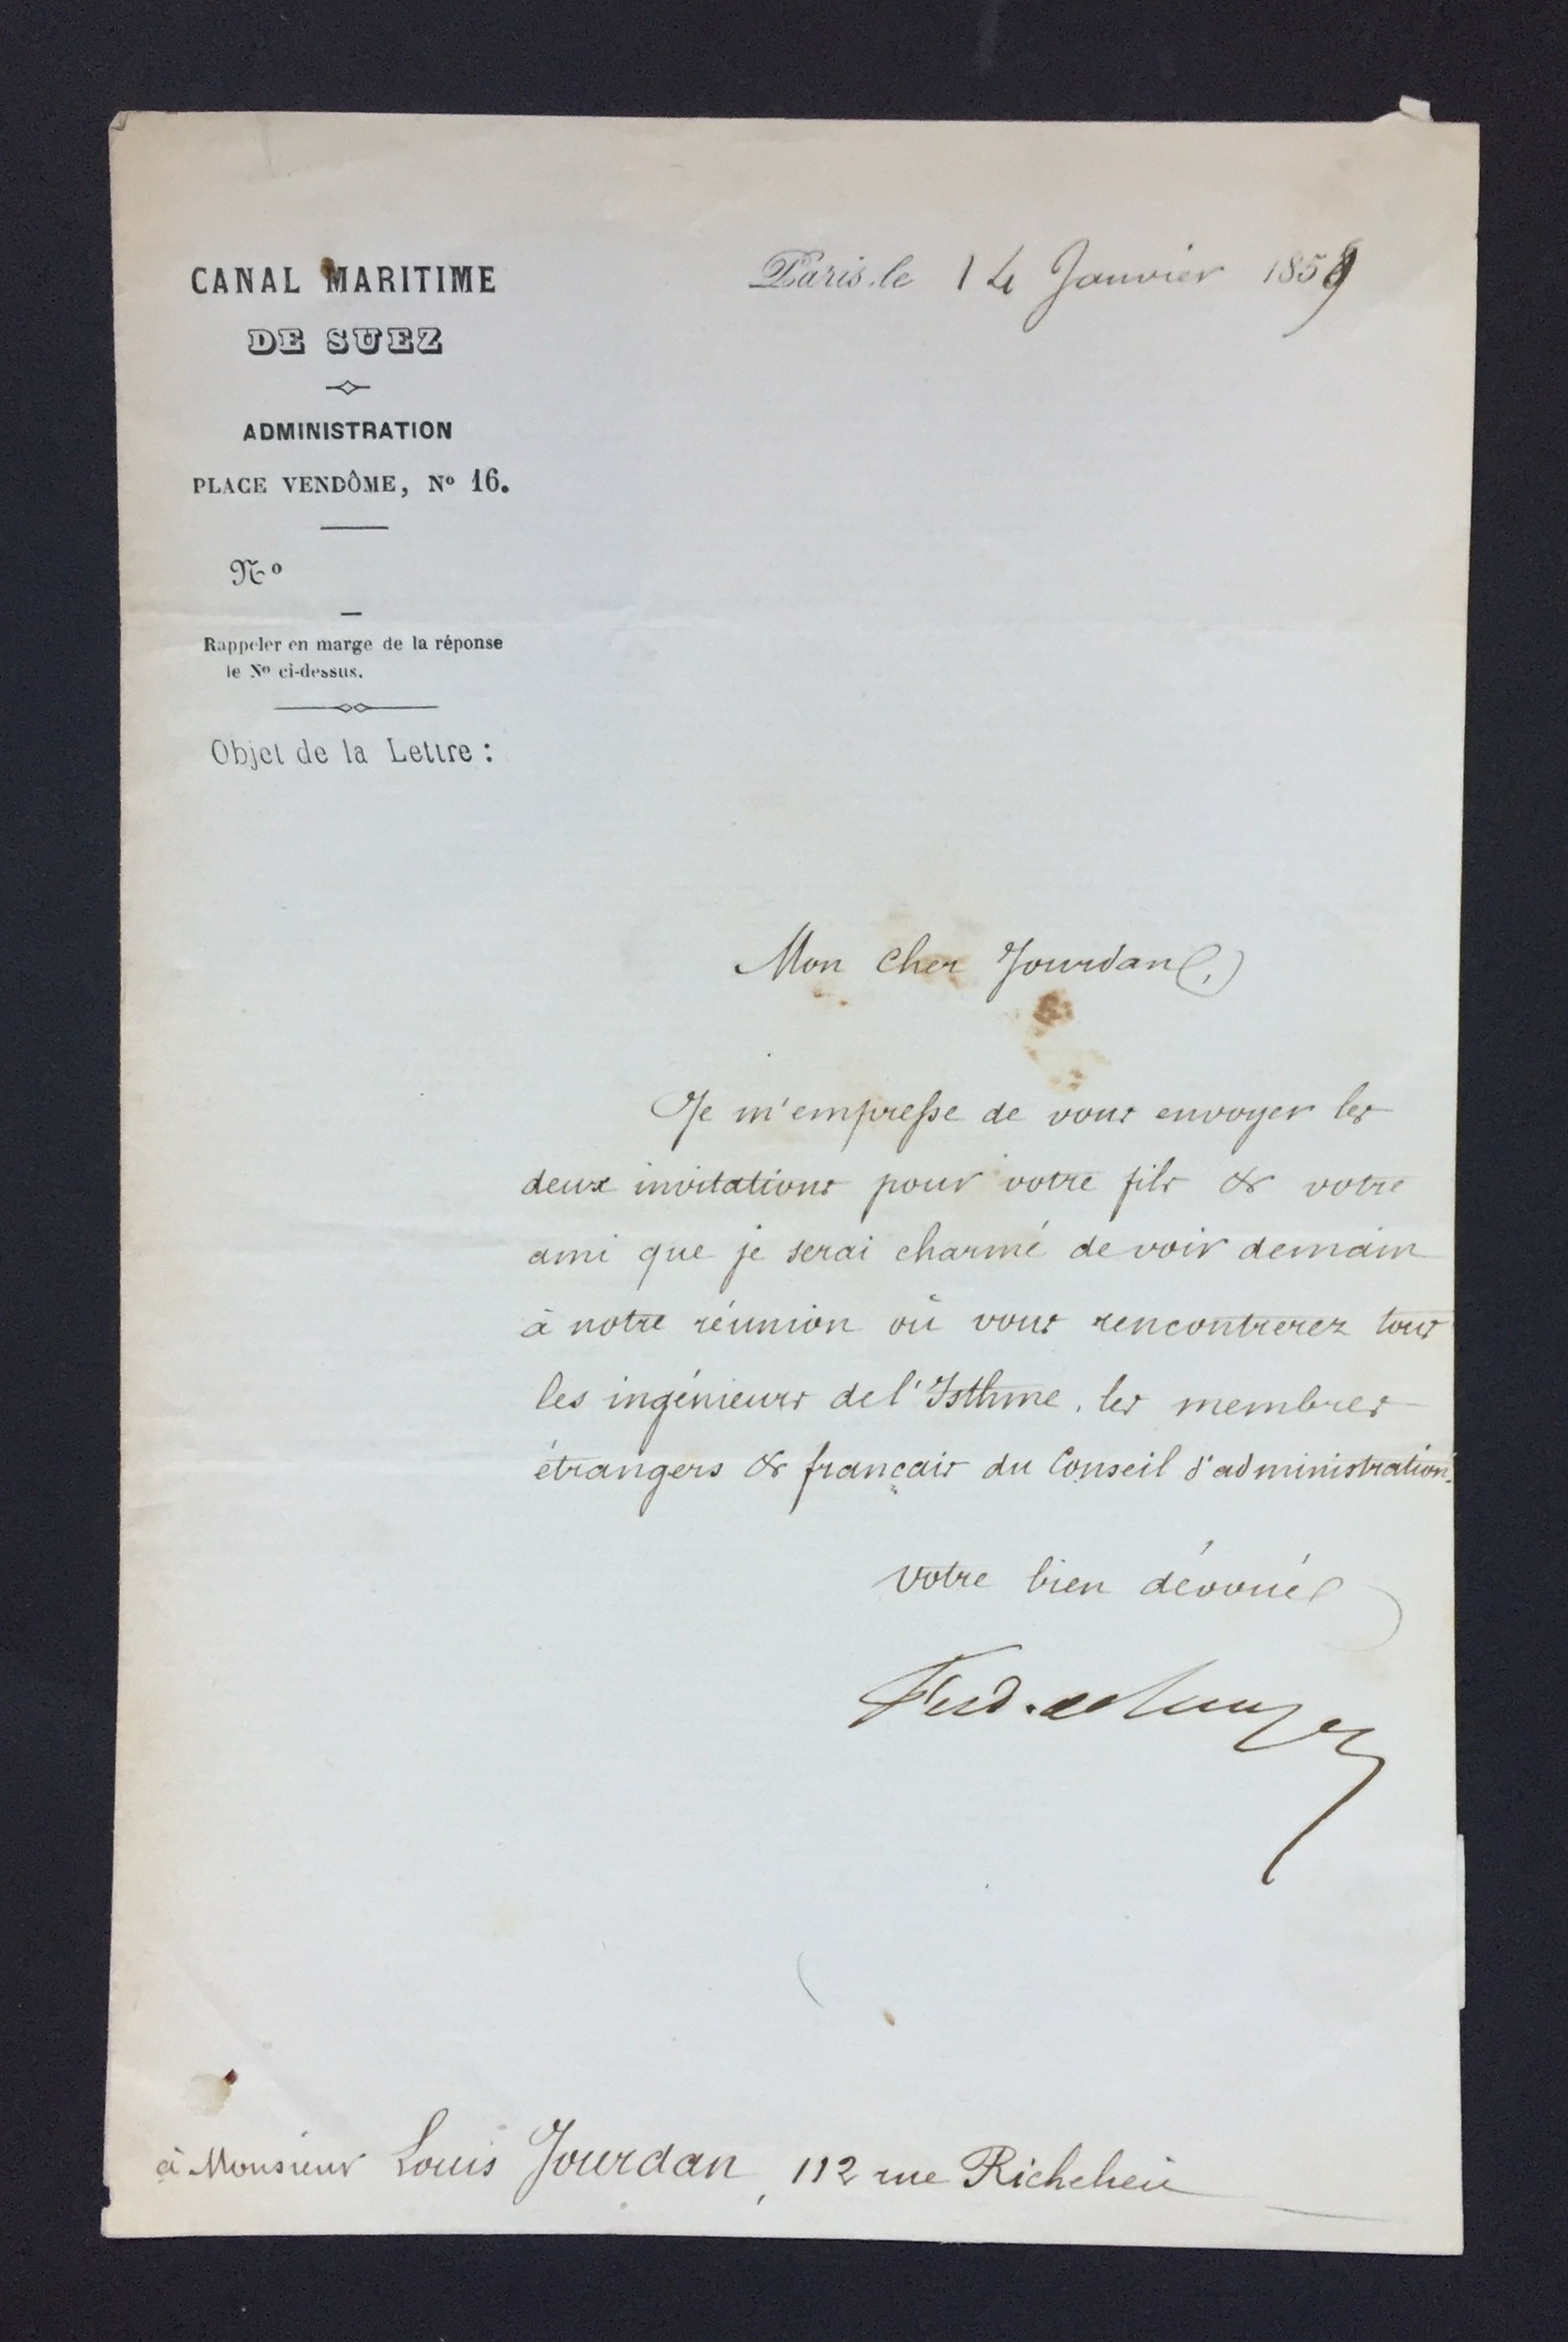 CANAL MARITIME
DE SUEZ
ADMINISTRATION
PLACE VENDÔME, Nº 16.
Nº
Rappeler en marge de la réponse
le Nº ci-dessus.
Objet de la Lettre :
Paris, le 14 Janvier 1859
Mon cher Jourdan,
Je m'empresse de vous envoyer les
deux invitations pour votre fils & votre
ami que je serai charmé de voir demain
à notre réunion où vous rencontrerez tous
les ingénieurs de l'Isthme, les membres
étrangers & français du Conseil d'administration.
votre bien dévoué
Ferd. de Lesseps
à Monsieur Louis Jourdan, 112 rue Richelieu